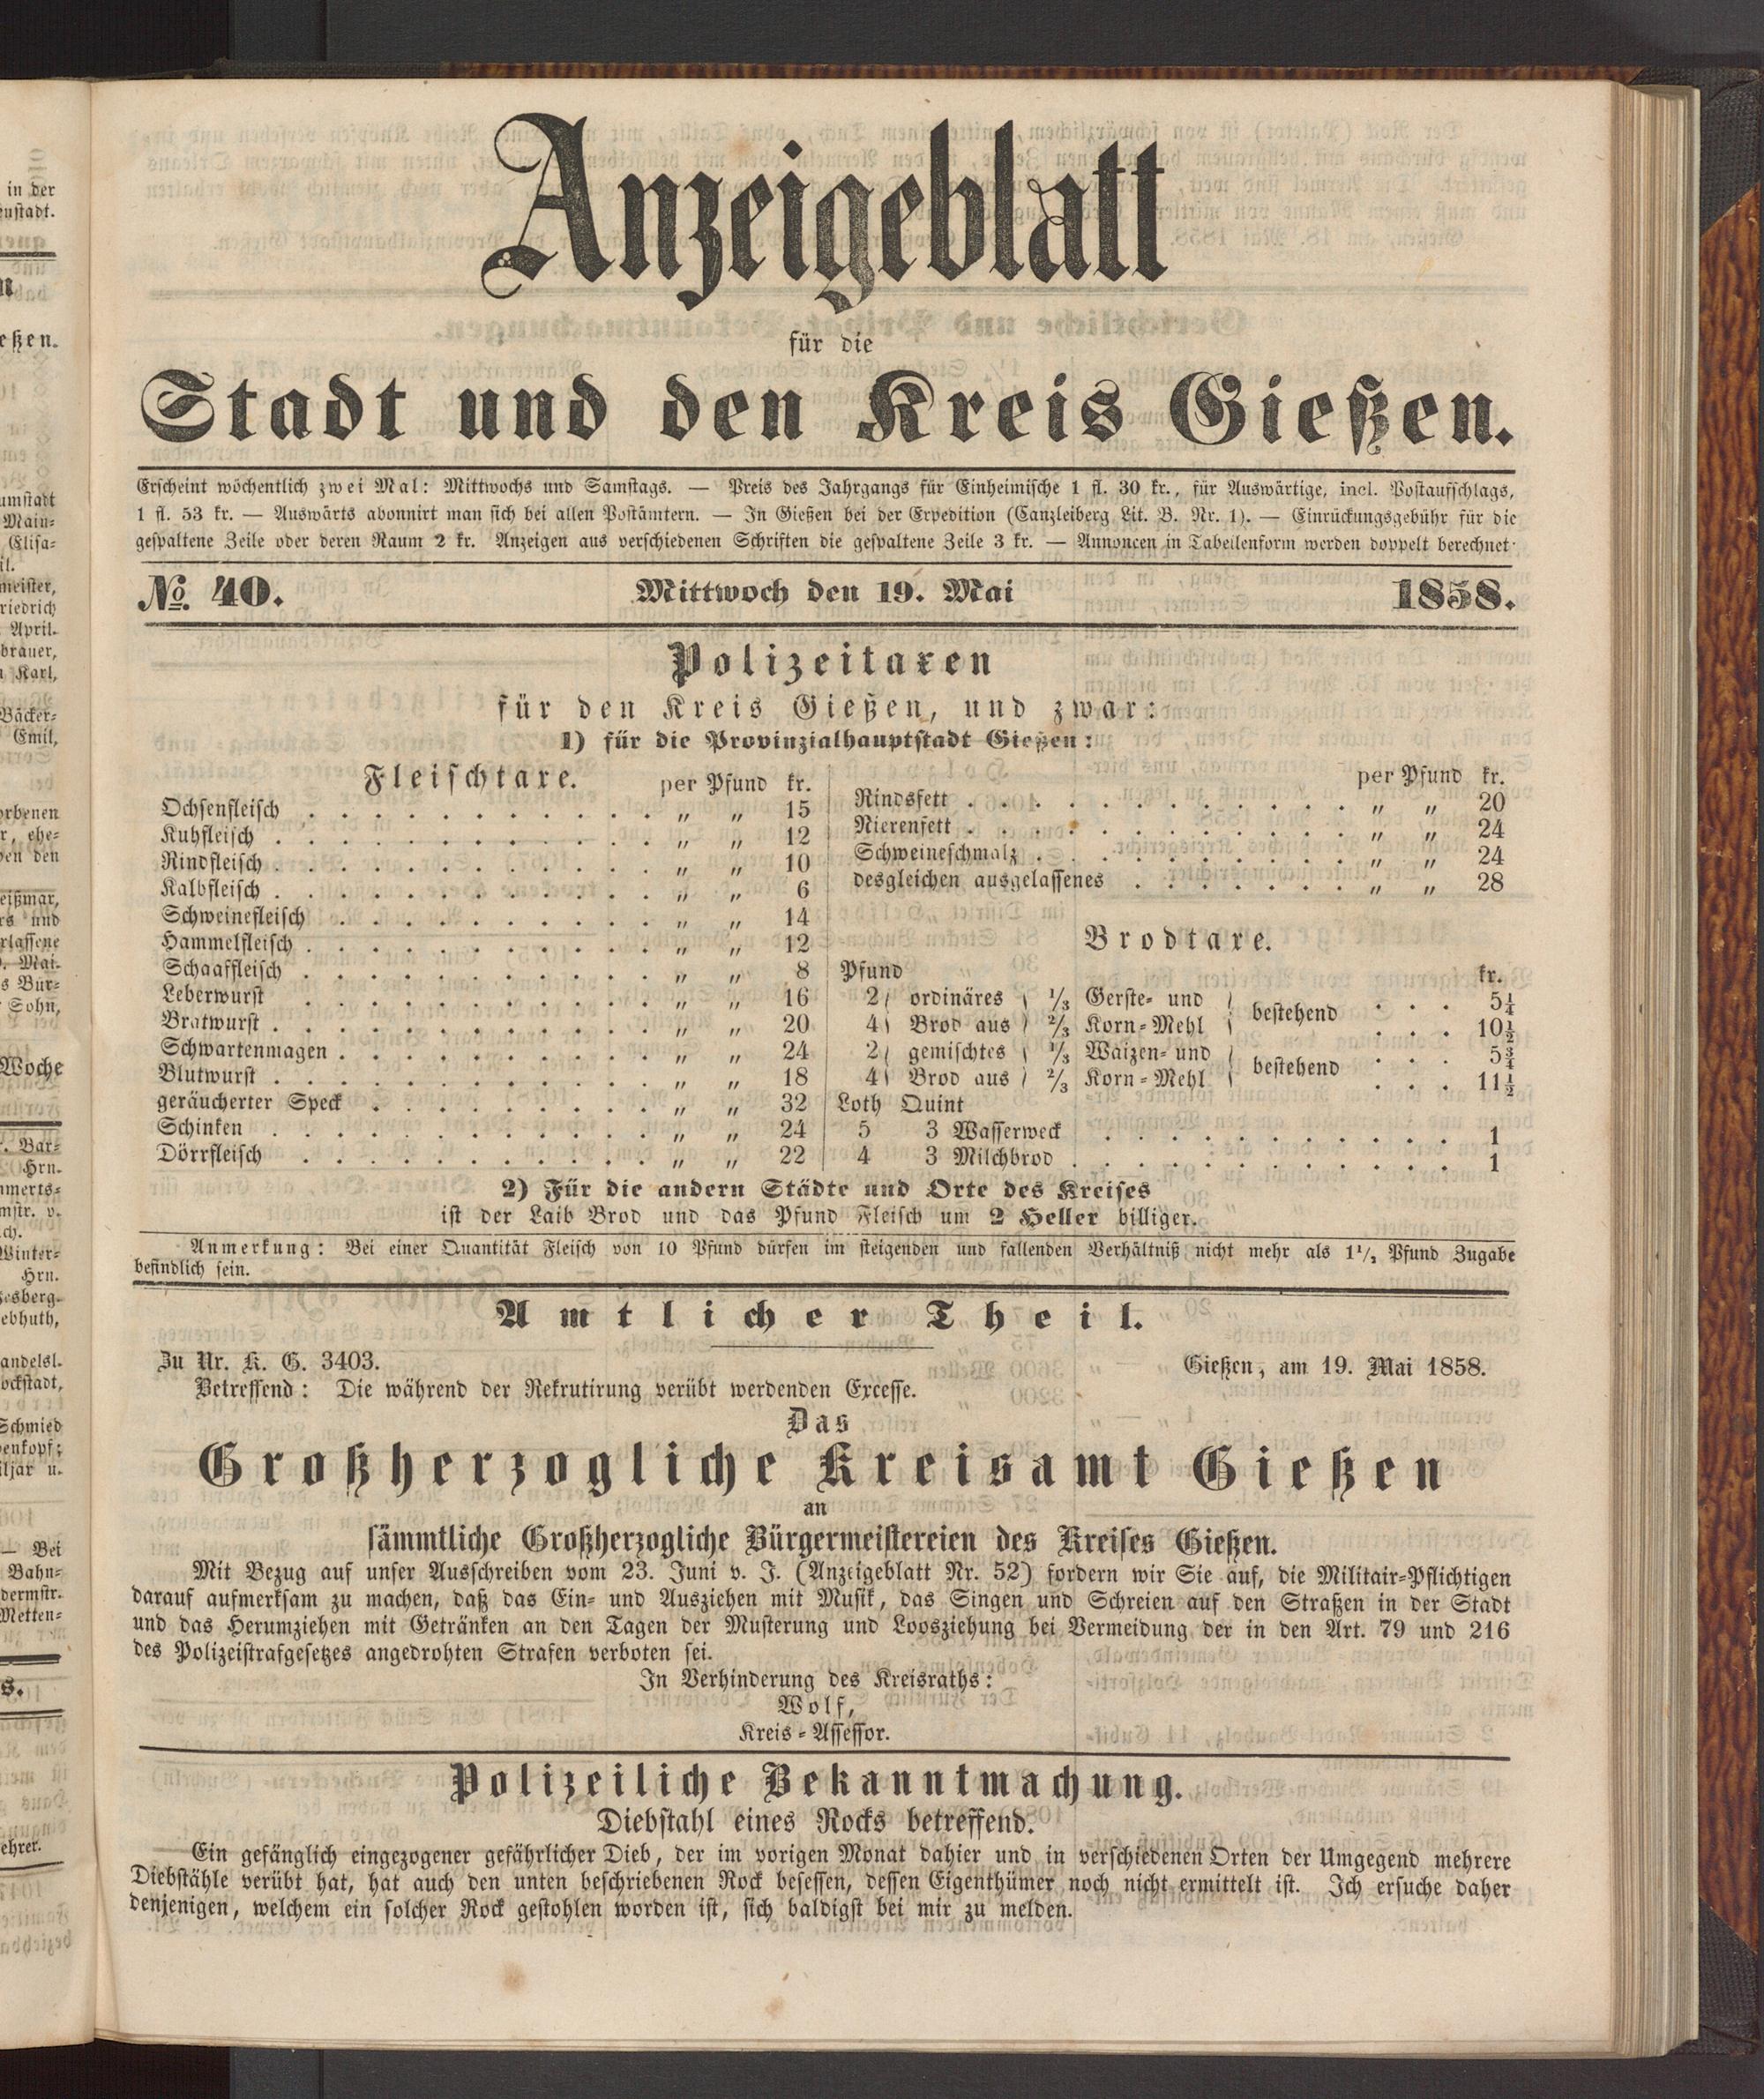 Anzeigeblatt
für die
Stadt und den Kreis Gießen.
Erscheint wöchentlich zwei Mal: Mittwochs und Samstags. — Preis des Jahrgangs für Einheimische 1 fl. 30 kr., für Auswärtige, incl. Postaufschlags,
1 fl. 53 kr. — Auswärts abonnirt man sich bei allen Postämtern. — In Gießen bei der Expedition (Canzleiberg Lit. B. Nr. 1). — Einrückungsgebühr für die
gespaltene Zeile oder deren Raum 2 kr. Anzeigen aus verschiedenen Schriften die gespaltene Zeile 3 kr. — Annoncen in Tabellenform werden doppelt berechnet.
No. 40. Mittwoch den 19. Mai 1858.
Polizeitaxen
für den Kreis Gießen, und zwar:
1) für die Provinzialhauptstadt Gießen:
Fleischtaxe. per Pfund kr.
Ochsenfleisch . . . „ „ 15
Kuhfleisch . . . „ „ 12
Rindfleisch . . . „ „ 10
Kalbfleisch . . . „ „ 6
Schweinefleisch . . . „ „ 14
Hammelfleisch . . . „ „ 12
Schaaffleisch . . . „ „ 8
Leberwurst . . . „ „ 16
Bratwurst . . . „ „ 20
Schwartenmagen . . . „ „ 24
Blutwurst . . . „ „ 18
geräucherter Speck . . . „ „ 32
Schinken . . . „ „ 24
Dörrfleisch . . . „ „ 22
per Pfund kr.
Rindsfett . . . „ „ 20
Nierenfett . . . „ „ 24
Schweineschmalz . . . „ „ 24
desgleichen ausgelassenes . . . „ „ 28
Brodtaxe.
Pfund kr.
2 ordinäres 1/3 Gerste- und bestehend . . . 5¼
4 Brod aus 2/3 Korn-Mehl . . . 10½
2 gemischtes 1/3 Waizen- und bestehend . . . 5¾
4 Brod aus 2/3 Korn-Mehl . . . 11½
Loth Quint
5 3 Wasserweck . . . 1
4 3 Milchbrod . . . 1
2) Für die andern Städte und Orte des Kreises
ist der Laib Brod und das Pfund Fleisch um 2 Heller billiger.
Anmerkung: Bei einer Quantität Fleisch von 10 Pfund dürfen im steigenden und fallenden Verhältniß nicht mehr als 1½ Pfund Zugabe
befindlich sein.
Amtlicher Theil.
Zu Nr. K. G. 3403. Gießen, am 19. Mai 1858.
Betreffend: Die während der Rekrutirung verübt werdenden Excesse.
Das
Großherzogliche Kreisamt Gießen
an
sämmtliche Großherzogliche Bürgermeistereien des Kreises Gießen.
Mit Bezug auf unser Ausschreiben vom 23. Juni v. J. (Anzeigeblatt Nr. 52) fordern wir Sie auf, die Militair-Pflichtigen
darauf aufmerksam zu machen, daß das Ein- und Ausziehen mit Musik, das Singen und Schreien auf den Straßen in der Stadt
und das Herumziehen mit Getränken an den Tagen der Musterung und Loosziehung bei Vermeidung der in den Art. 79 und 216
des Polizeistrafgesetzes angedrohten Strafen verboten sei.
In Verhinderung des Kreisraths:
Wolf,
Kreis-Assessor.
Polizeiliche Bekanntmachung.
Diebstahl eines Rocks betreffend.
Ein gefänglich eingezogener gefährlicher Dieb, der im vorigen Monat dahier und in verschiedenen Orten der Umgegend mehrere
Diebstähle verübt hat, hat auch den unten beschriebenen Rock besessen, dessen Eigenthümer noch nicht ermittelt ist. Ich ersuche daher
denjenigen, welchem ein solcher Rock gestohlen worden ist, sich baldigst bei mir zu melden.